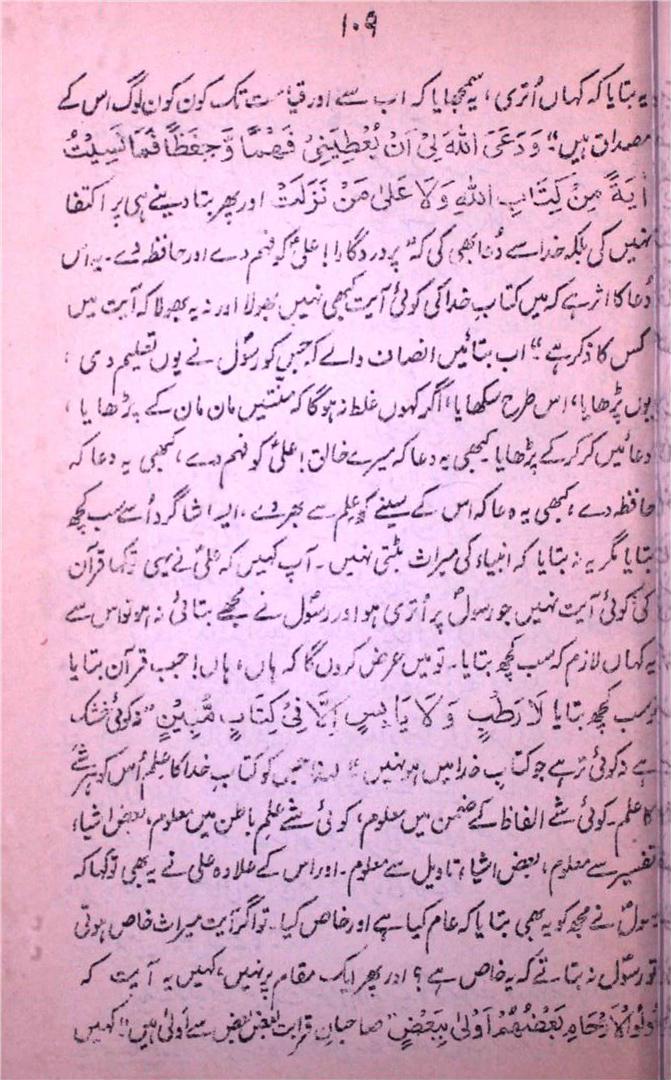 ۱۰۹
یہ بتایا کہ کہاں اُتری، یہ سمجھایا کہ اب سے اور قیامت تک کون کون لوگ اس کے
مصداق ہیں" وَدَعَی اللّٰہَ لِیْ اَنْ یُعْطِیَنِیْ فَھْمًا وَّ حِفْظًا فَمَا نَسِیْتُ
اٰیَۃً مِنْ کِتَابِ اللّٰہِ وَلَا عَلٰی مَنْ نَزَلَتْ اور پھر بتا دینے ہی پر اکتفا
نہیں کی بلکہ خدا سے دُعا بھی کی کہ "پروردگارا! علیؑ کو فہم دے اور حافظہ دے۔ یہ اس
دُعا کا اثر ہے کہ میں کتاب خدا کی کوئی آیت کبھی نہیں بُھولا اور نہ یہ بھولا کہ آیت میں
کس کا ذکر ہے"۔ اب بتائیں انصاف والے کہ جس کو رسولؐ نے یوں تعلیم دی،
یوں پڑھایا، اس طرح سکھایا، اگر کہوں غلط نہ ہوگا کہ منتیں مان مان کے پڑھایا،
دعائیں کر کر کے پڑھایا کبھی یہ دعا کہ میرے خالق! علیؑ کو فہم دے، کبھی یہ دعا کہ
حافظہ دے، کبھی یہ دعا کہ اس کے سینے کو علم سے بھر دے، ایسا شاگرد اُسے سب کچھ
بتایا مگر یہ نہ بتایا کہ انبیاء کی میراث بٹتی نہیں۔ آپ کہیں کہ علیؑ نے یہی تو کہا قرآن
کی کوئی آیت نہیں جو رسولؐ پر اُتری ہو اور رسولؐ نے مجھے بتائی نہ ہو تو اس سے
یہ کہاں لازم کہ سب کچھ بتایا۔ تو میں عرض کردوں گا کہ ہاں، ہاں! جب قرآن بتایا
تو سب کچھ بتایا لَا رَطْبٍ وَلَا یَابِسٍ اِلَّا فِیْ کِتَابٍ مُّبِیْنٍ "نہ کوئی خشک
ہے نہ کوئی تر ہے جو کتاب خدا میں ہو نہیں" لہٰذا جس کو کتاب خدا کا علم اُس کو ہر شے
کا علم۔ کوئی شے الفاظ کے ضمن میں معلوم، کوئی شے علم باطن میں معلوم، بعض اشیاء
تفسیر سے معلوم، بعض اشیاء تاویل سے معلوم۔ اور اس کے علاوہ علی نے یہ بھی تو کہا کہ
رسولؐ نے مجھ کو یہ بھی بتایا کہ عام کیا ہے اور خاص کیا۔ تو اگر آیت میراث خاص ہوتی
تو رسولؐ نہ بتاتے کہ یہ خاص ہے؟ اور پھر ایک مقام پر نہیں، کہیں یہ آیت کہ
اُولُوا الْاَرْحَامِ بَعْضُھُمْ اَوْلٰی بِبَعْضٍ "صاحبان قرابت بعض بعض سے اَولیٰ ہیں" کہیں